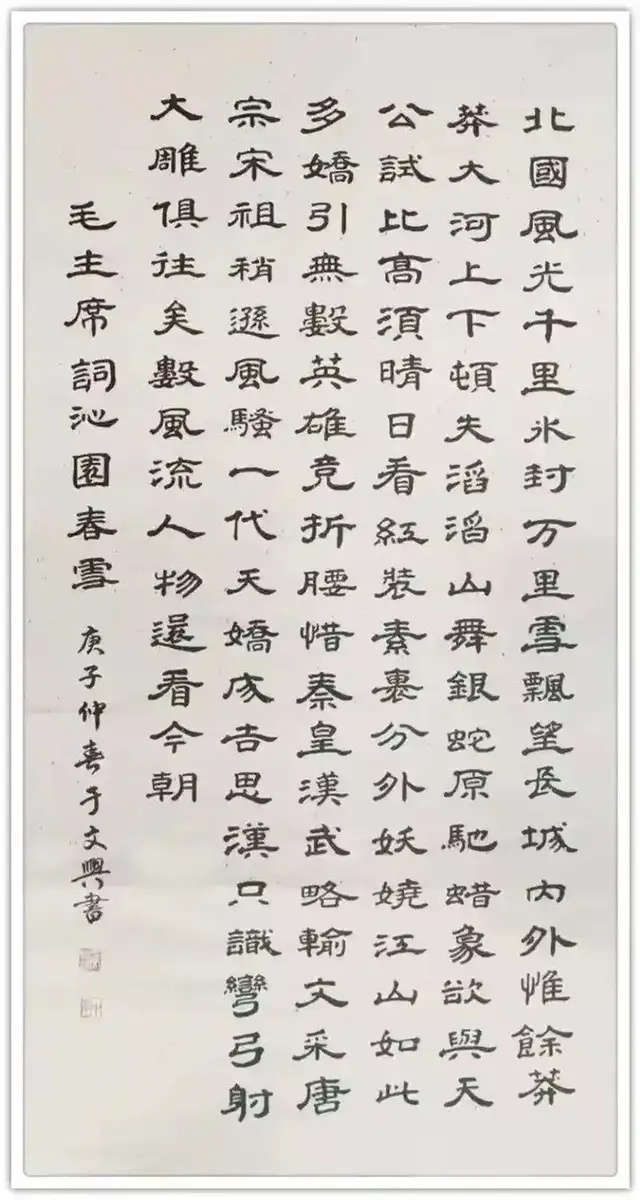 北國風光千里氷封万里雪飄望長城內外惟餘莽
莽大河上下頓失滔滔山舞銀蛇原馳蜡象欲與天
公試比高須晴日看紅裝素裹分外妖嬈江山如此
多嬌引無數英雄竞折腰惜秦皇漢武略輸文采唐
宗宋祖稍遜風騷一代天嬌成吉思漢只識彎弓射
大雕俱往矣數風流人物還看今朝
毛主席詞沁園春雪 庚子仲春于文興書